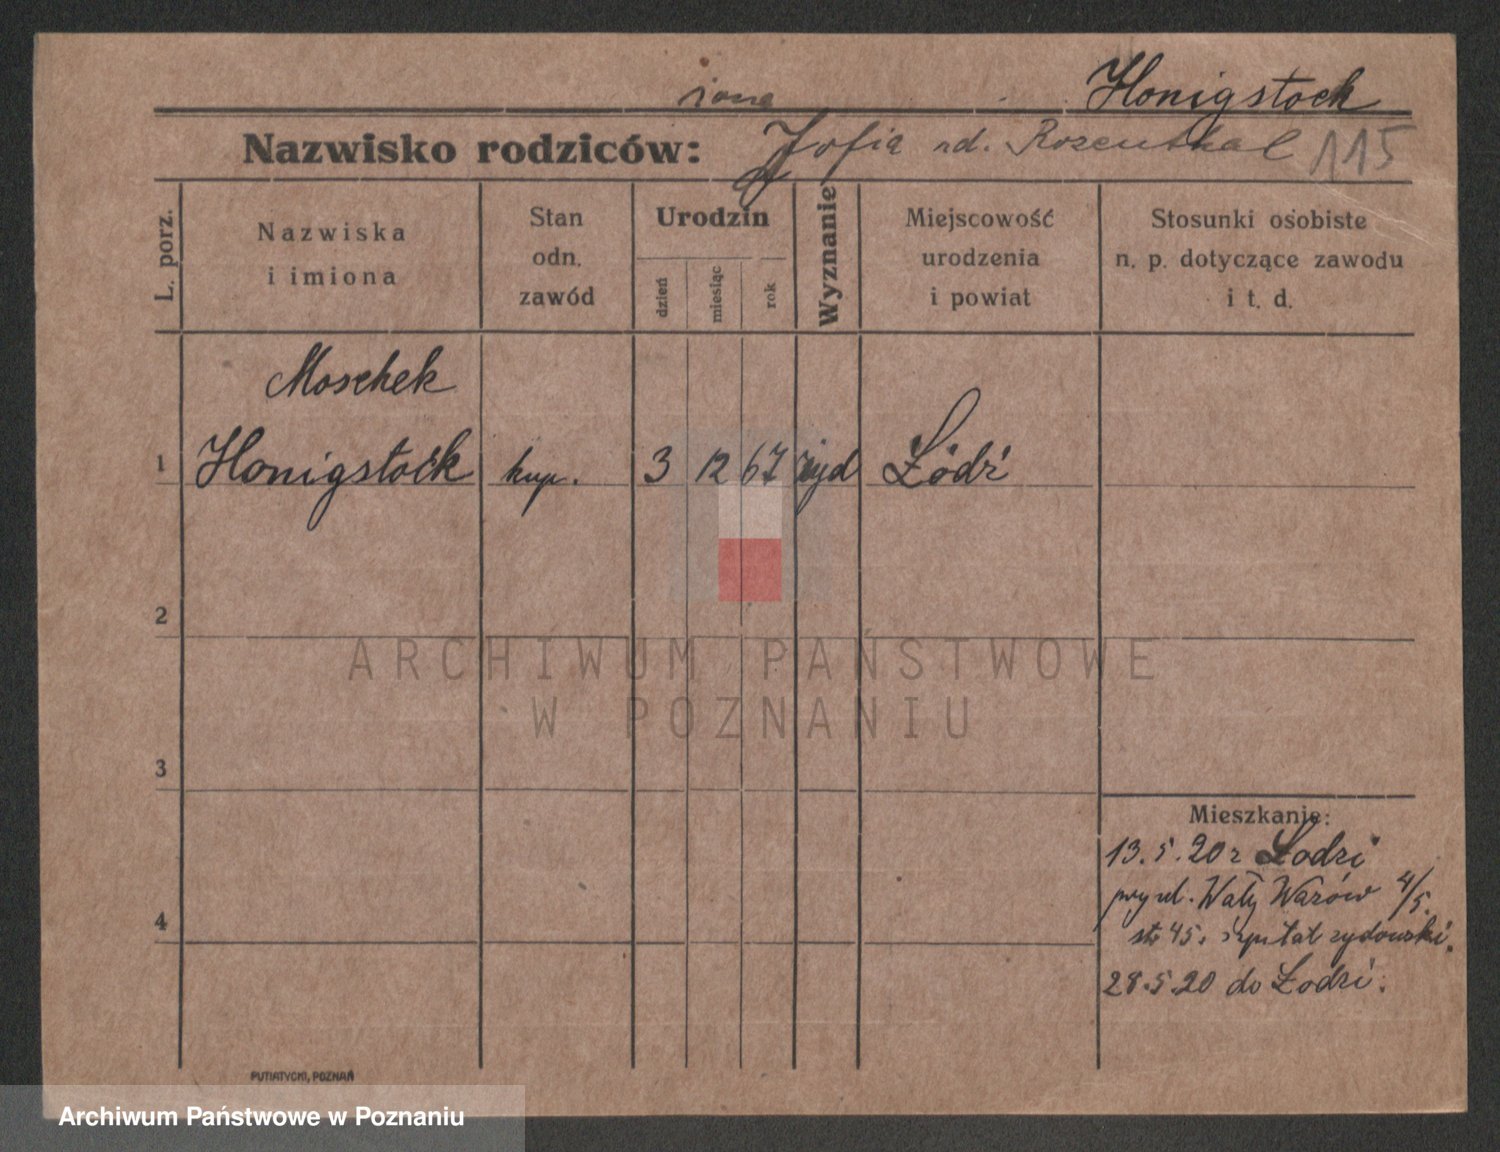 Honigstock
żona
Nazwisko rodziców: Zofia rd. Rozenthal 115
L. porz.
Nazwiska
i imiona
Stan
odn.
zawód
Urodzin
dzień
miesiąc
rok
Wyznanie
Miejscowość
urodzenia
i powiat
Stosunki osobiste
n. p. dotyczące zawodu
i t. d.
Moschek
1 Honigstock kup. 3 12 67 żyd Łódź
2
ARCHIWUM PAŃSTWOWE
W POZNANIU
3
Mieszkanie:
13.5.20 z Łodzi
przy ul. Wały Wazów 4/5.
st. 45. szpital zydowski.
4
28.5.20 do Łodzi.
PUTIATYCKI, POZNAŃ
Archiwum Państwowe w Poznaniu